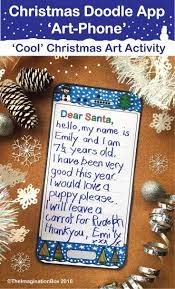 Christmas Doodle App
'Art-Phone'
'Cool' Christmas Art Activity
Dear Santa,
hello, my name is
Emily and I am
7½ years old.
I have been very
good this year.
I would love a
puppy please.
I will leave a
carrot for Rudolph
thankyou, Emily
xxx
©TheImaginationBox 2016